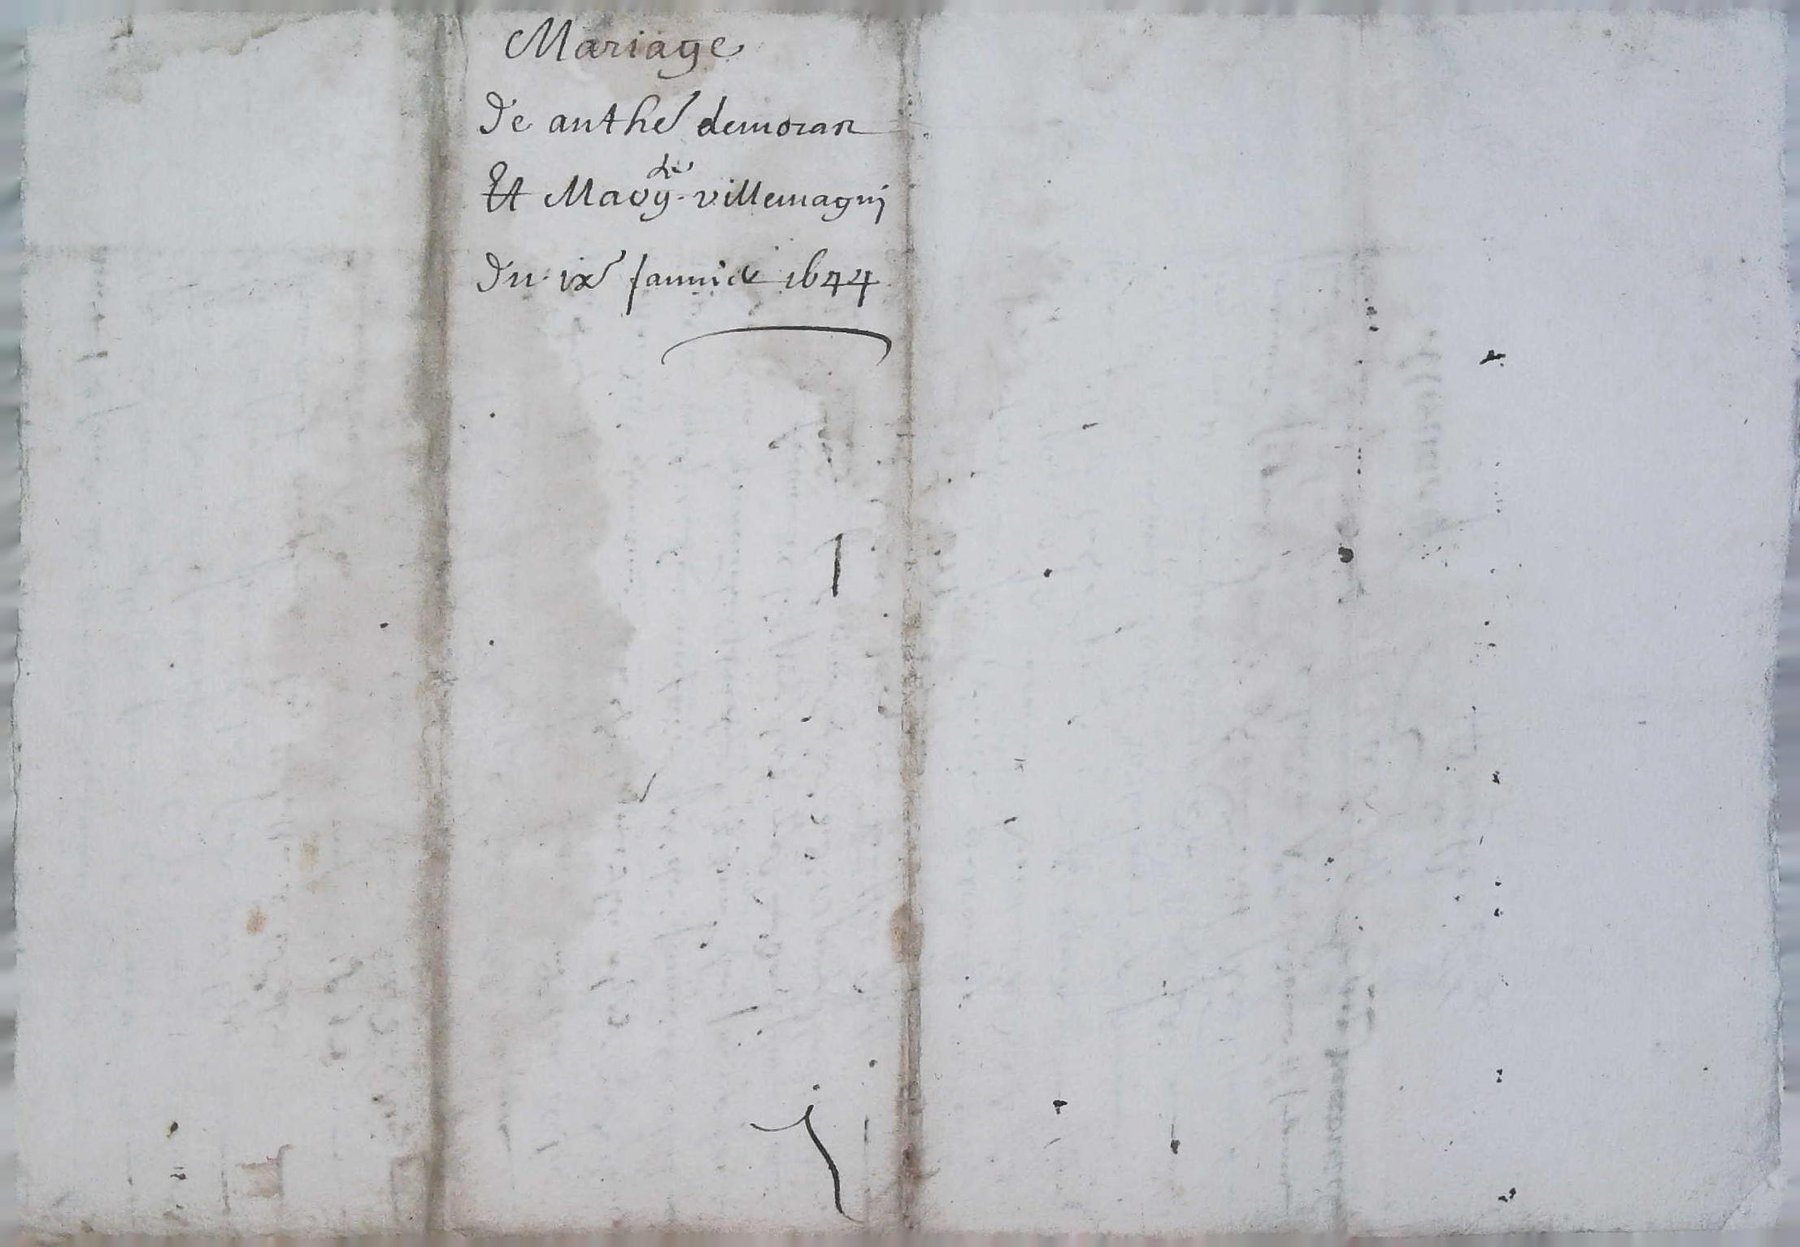 Mariage
de anthe demoran
de
Et Mavy villemagni
du ix jannie 1644